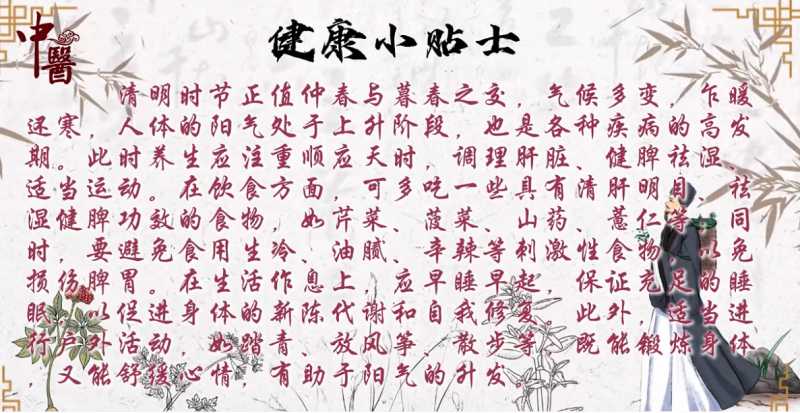 中醫
健康小贴士
清明时节正值仲春与暮春之交，气候多变，乍暖
还寒，人体的阳气处于上升阶段，也是各种疾病的高发
期。此时养生应注重顺应天时，调理肝脏、健脾祛湿、
适当运动。在饮食方面，可多吃一些具有清肝明目、祛
湿健脾功效的食物，如芹菜、菠菜、山药、薏仁等。同
时，要避免食用生冷、油腻、辛辣等刺激性食物，以免
损伤脾胃。在生活作息上，应早睡早起，保证充足的睡
眠，以促进身体的新陈代谢和自我修复。此外，适当进
行户外活动，如踏青、放风筝、散步等，既能锻炼身体
，又能舒缓心情，有助于阳气的升发。